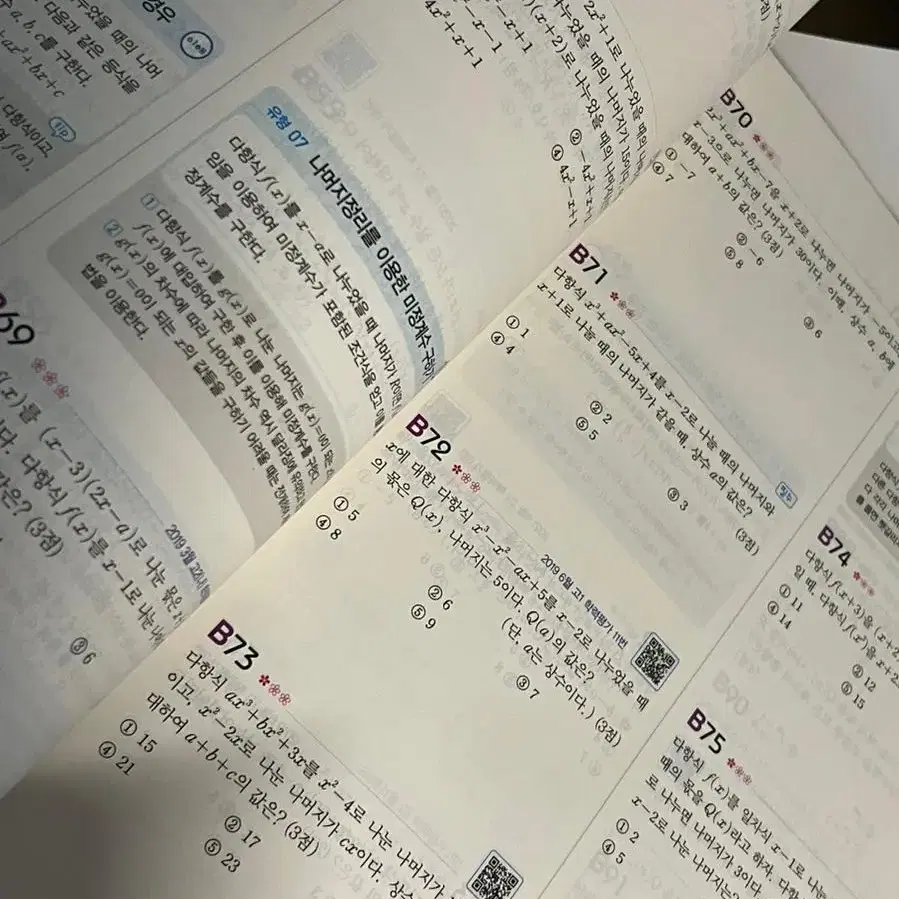 경우
누었을 때의 나머
다음과 같은 등식을
a, b, c를 구한다.
+ax²+bx+c
다항식이고,
f(a).
tip
유형 07 나머지정리를 이용한 미정계수
다항식 f(x)를 x-a로 나누었을 때 나머지가
임을 이용하여 미정계수가 포함된 조건식을 얻고
정계수를 구한다.
1 다항식 f(x)를 g(x)로 나눈 나머지는 g(x)=0이 되는
f(x)에 대입하여 구한 후 이를 이용해 미정계수를 구한다.
2 g(x)의 차수에 따라 나머지의 차수 역시 달라짐에
g(x)=0이 되는 x의 값들을 구하기 어려울 때는
법을 이용한다.
69
2019 3월
(x)를 (x-3)(2x-a)로 나눈 몫은
다. 다항식 f(x)를 x-1로 나눈
값은? (3점)
③ 6
2x²+1로 나누었을 때의
)(x+2)로 나누었을 때의 나머지가 15이다.
나누었을 때의 나머지
-x+1
-x-1
4x²+x+1
② -4x²+x+1
④ 4x²-x+1
B70
+ax²+bx-7을 x+2로 나누면 나머지가 -5이고
x-3으로 나누면 나머지가 30이다. 이때, 상수 a, b에
대하여 a+b의 값은? (3점)
① -7
② -6
③ 6
④ 7
⑤ 8
B71
필수
다항식 x³+ax²-5x+4를 x-2로 나눌 때의 나머지와
x+1로 나눌 때의 나머지가 같을 때, 상수 a의 값은?
(3점)
① 1
② 2
③ 3
④ 4
⑤ 5
B72
2019 6월 고1 학력평가 11번
x에 대한 다항식 x³-x²-ax+5를 x-2로 나누었을 때
의 몫은 Q(x), 나머지는 5이다. Q(a)의 값은?
(단, a는 상수이다.) (3점)
① 5
② 6
③ 7
④ 8
⑤ 9
B73
다항식 ax³+bx²+3x를 x²-4로 나눈 나머지가
이고, x²-2x로 나눈 나머지가 cx이다. 상수
대하여 a+b+c의 값은? (3점)
① 15
② 17
④ 21
⑤ 23
B74
다항식 f(x+3)을 (x+2)
일 때, 다항식 f(x)을 x+2
① 11
② 12
④ 14
⑤ 15
B75
다항식 f(x)를 일차식 x-1로 나누
때의 몫을 Q(x)라고 하자. 다항
로 나누면 나머지가 3이다.
x-2로 나눈 나머지는?
① 2
④ 5